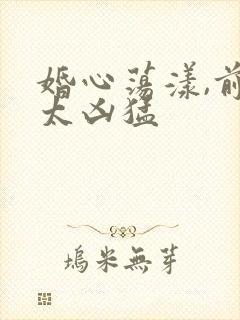 婚心荡漾,前
太凶猛
塢米無芽